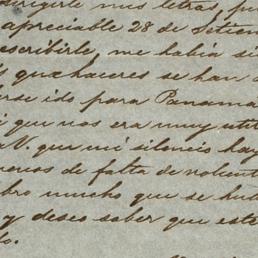 dirigirle mis letras, po
apreciable 28 de Setiem
escribirle, me habia si
quehaceres se han a
rse ido para Panama
i que nos era muy util
a V. que mi silencio hay
menos de falta de volunt
bro mucho que se hu
y deseo saber que este
o.